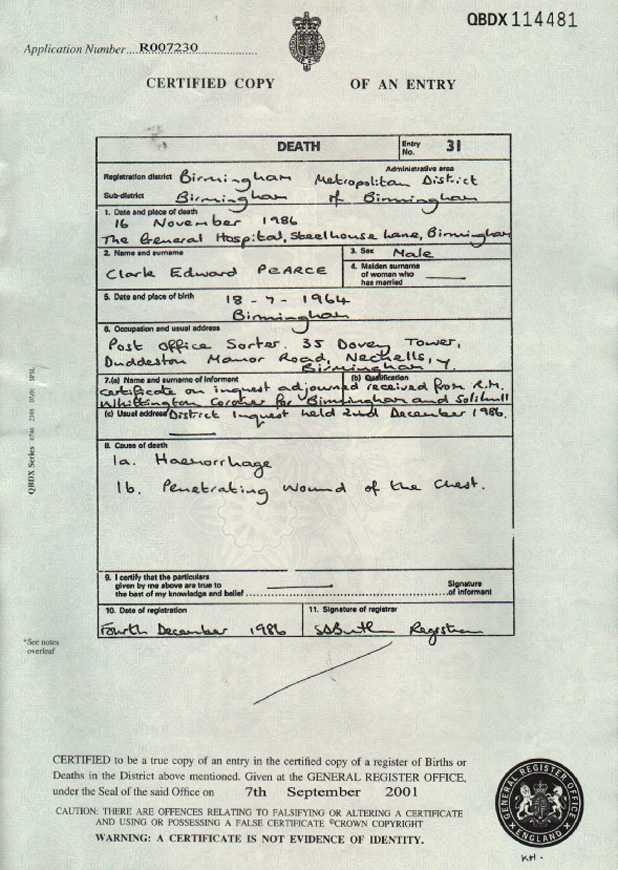 QBDX 114481
Application Number...R007230
CERTIFIED COPY OF AN ENTRY
DEATH Entry No. 31
Registration district Birmingham Administrative area
Metropolitan District
Sub-district Birmingham of Birmingham
1. Date and place of death
16 November 1986
The General Hospital, Steelhouse Lane, Birmingham
2. Name and surname
Clark Edward PEARCE
3. Sex Male
4. Maiden surname
of woman who
has married
5. Date and place of birth 18-7-1964
Birmingham
6. Occupation and usual address
Post Office Sorter. 35 Dovey Tower,
Duddeston Manor Road, Nechells,
Birmingham
7.(a) Name and surname of informant (b) Qualification
Certificate on inquest adjourned received from R.M.
Whittington Coroner for Birmingham and Solihull
(c) Usual address District Inquest held 2nd December 1986.
8. Cause of death
1a. Haemorrhage
1b. Penetrating Wound of the Chest.
9. I certify that the particulars
given by me above are true to
the best of my knowledge and belief
Signature
of informant
10. Date of registration
Fourth December 1986
11. Signature of registrar
Registrar
*See notes
overleaf
QBDX Series
CERTIFIED to be a true copy of an entry in the certified copy of a register of Births or
Deaths in the District above mentioned. Given at the GENERAL REGISTER OFFICE,
under the Seal of the said Office on 7th September 2001
CAUTION: THERE ARE OFFENCES RELATING TO FALSIFYING OR ALTERING A CERTIFICATE
AND USING OR POSSESSING A FALSE CERTIFICATE ©CROWN COPYRIGHT
WARNING: A CERTIFICATE IS NOT EVIDENCE OF IDENTITY.
GENERAL REGISTER OFFICE
ENGLAND
KH.